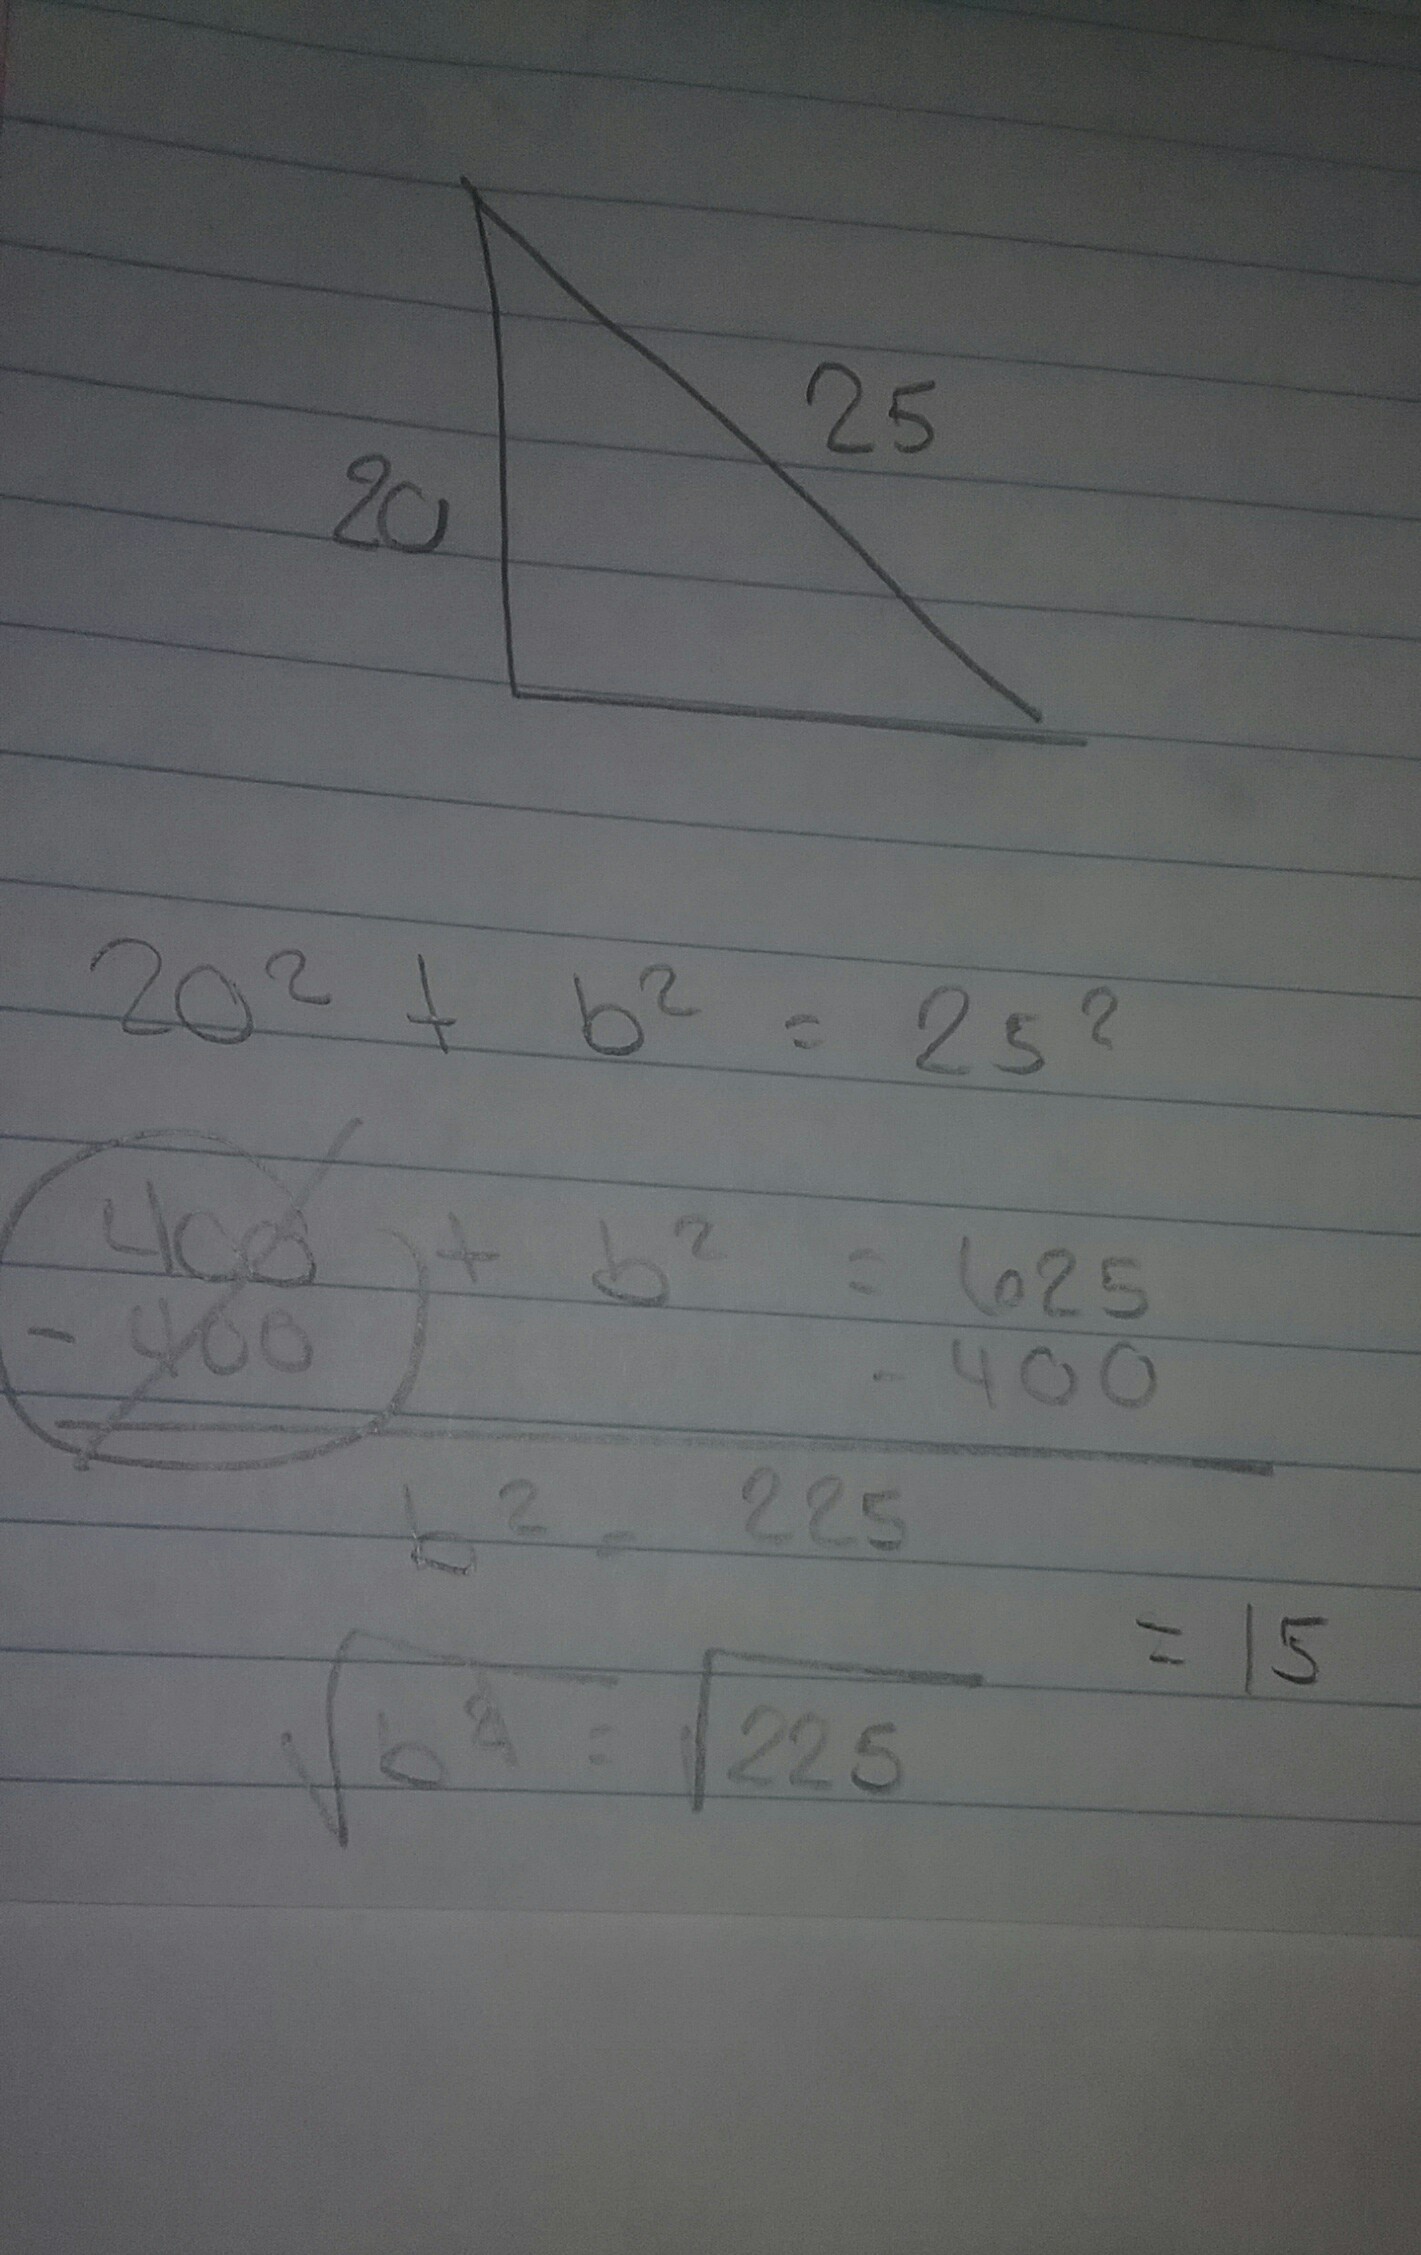 25
20
20² + b² = 25²
400 + b² = 625
- 400 - 400
b² = 225
= 15
√b² = √225